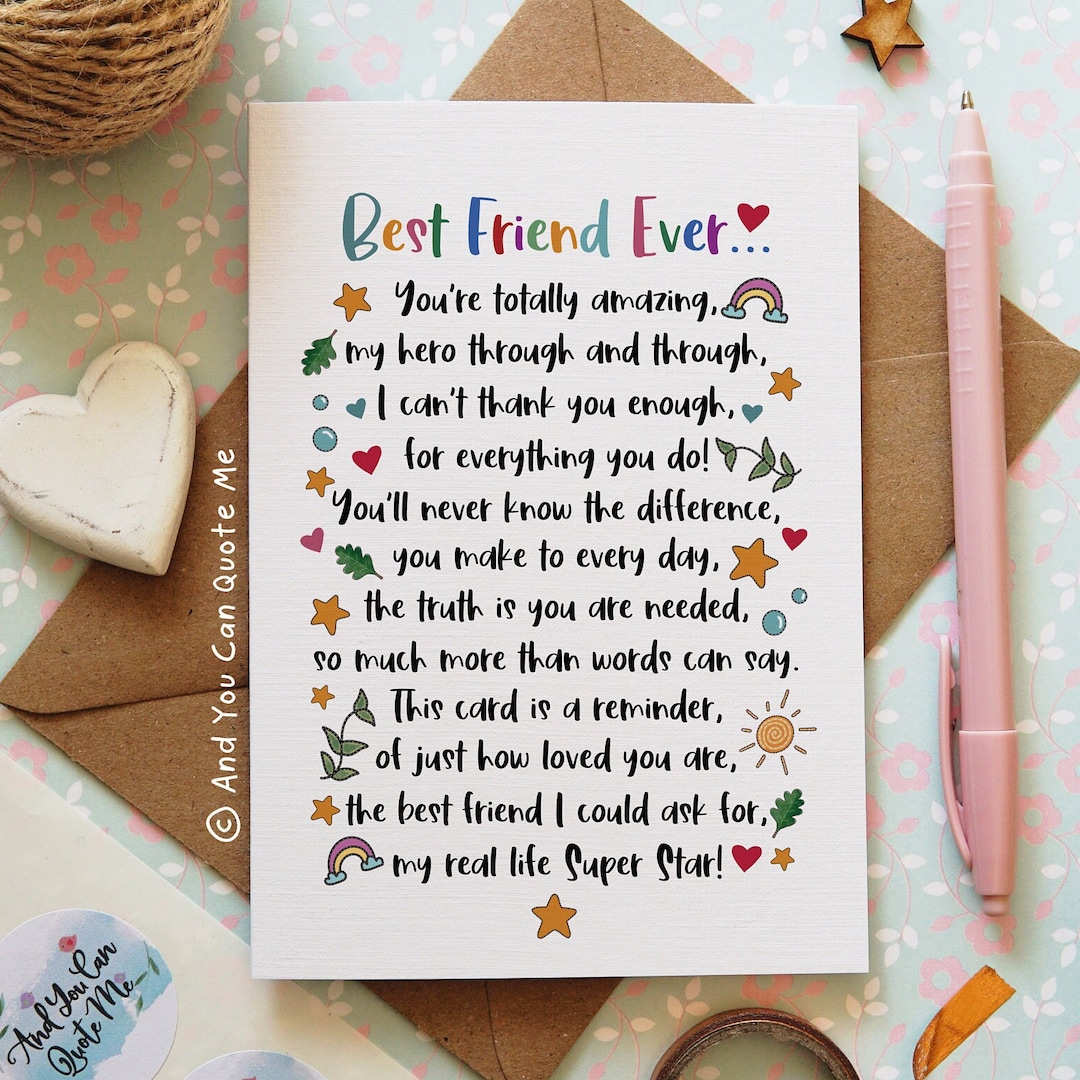 Best Friend Ever...
You're totally amazing,
my hero through and through,
I can't thank you enough,
for everything you do!
You'll never know the difference,
you make to every day,
the truth is you are needed,
so much more than words can say.
This card is a reminder,
of just how loved you are,
the best friend I could ask for,
my real life Super Star!
© And You Can Quote Me
And You Can
Quote Me